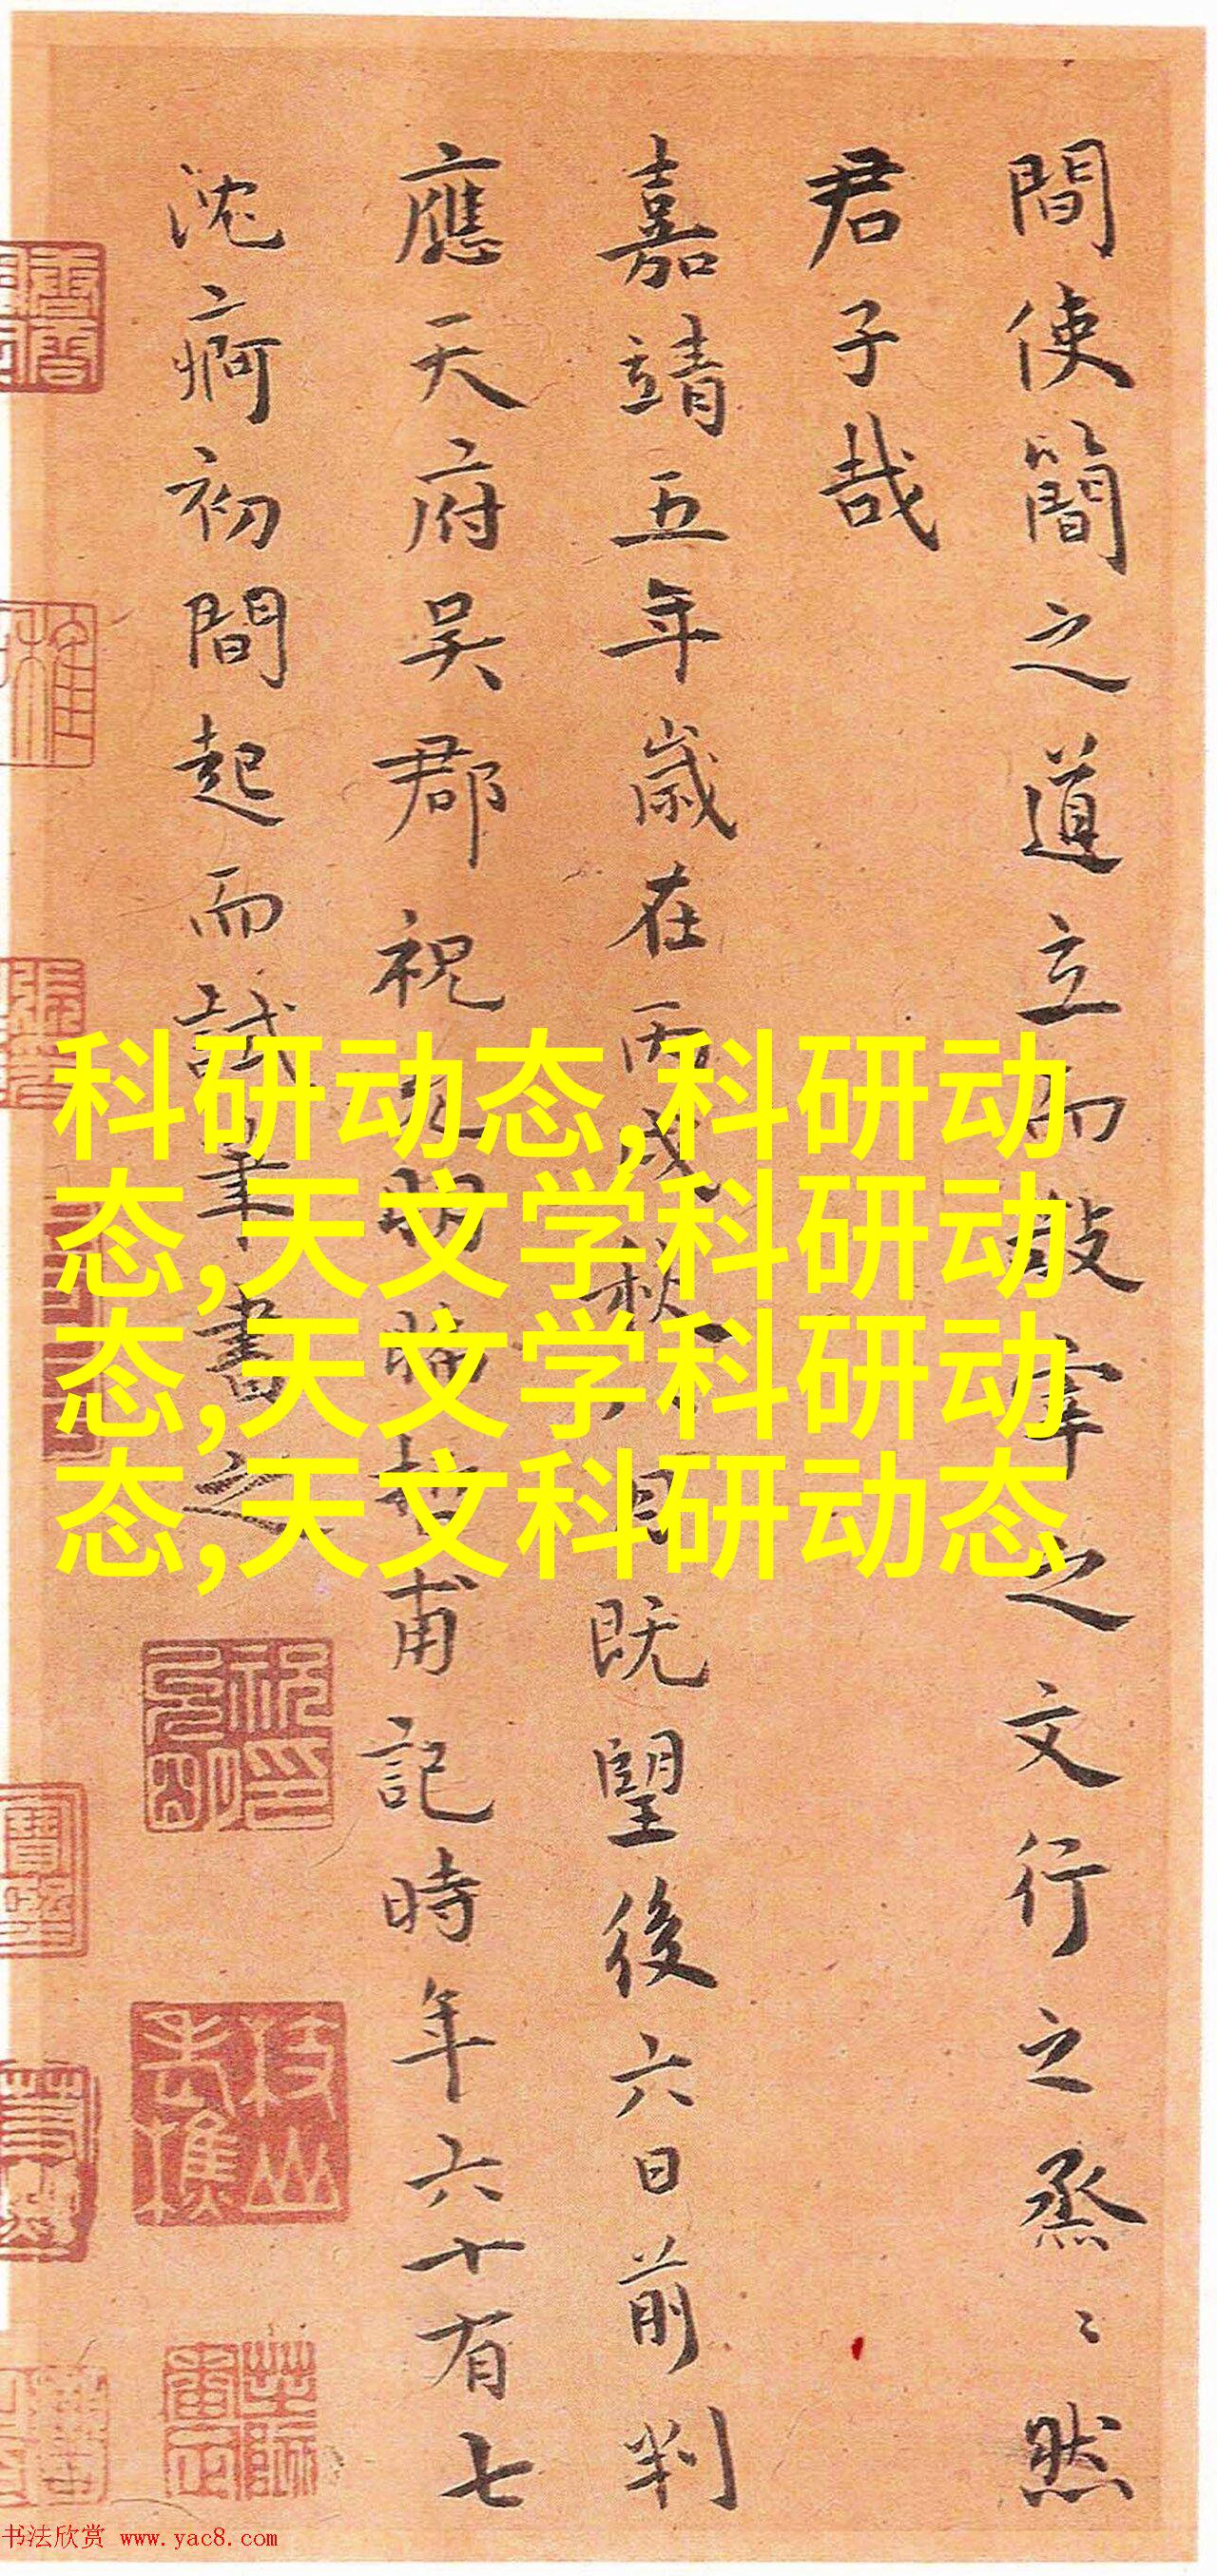 間使簡之道立而敬宰之文行之烝〻然
君子哉
嘉靖五年歲在丙戌秋八月既望後六日前判
應天府吳郡祝允明晞哲甫記時年六十有七
沈痾初間起而試筆書之
科研动态,科研动
态,天文学科研动
态,天文学科研动
态,天文科研动态
祝允明印
枝山老樵
书法欣赏 www.yac8.com